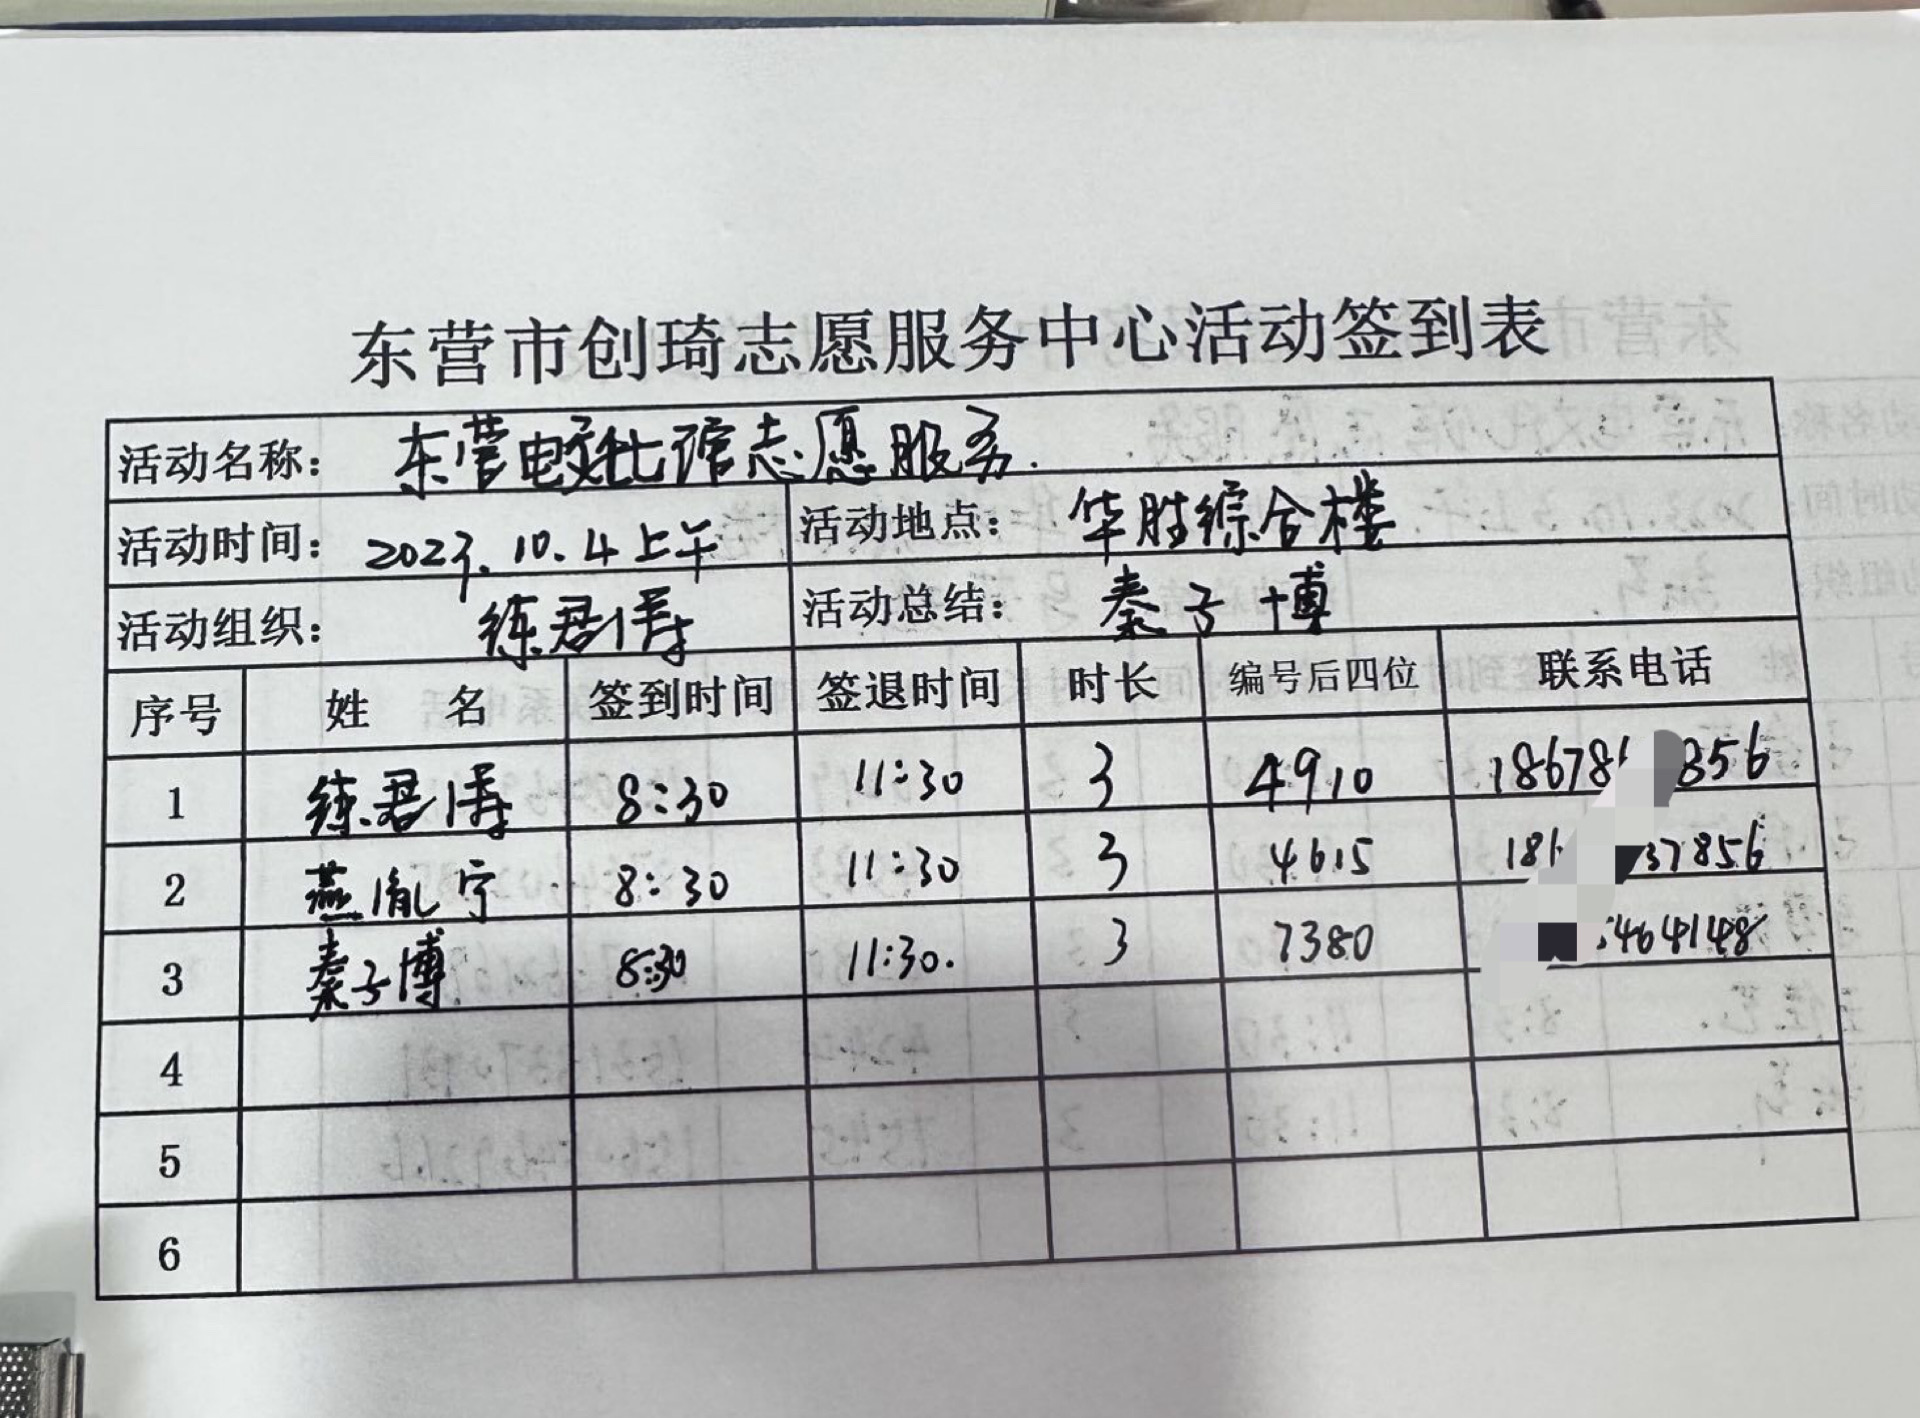 东营市创琦志愿服务中心活动签到表
活动名称: 东营电文化馆志愿服务.
活动时间: 2023.10.4上午 活动地点: 华胜综合楼
活动组织: 练君博 活动总结: 秦子博
序号 姓 名 签到时间 签退时间 时长 编号后四位 联系电话
1 练君博 8:30 11:30 3 4910 18678 856
2 燕胤宁 8:30 11:30 3 4615 18 37856
3 秦子博 8:30 11:30. 3 7380 464148
4
5
6